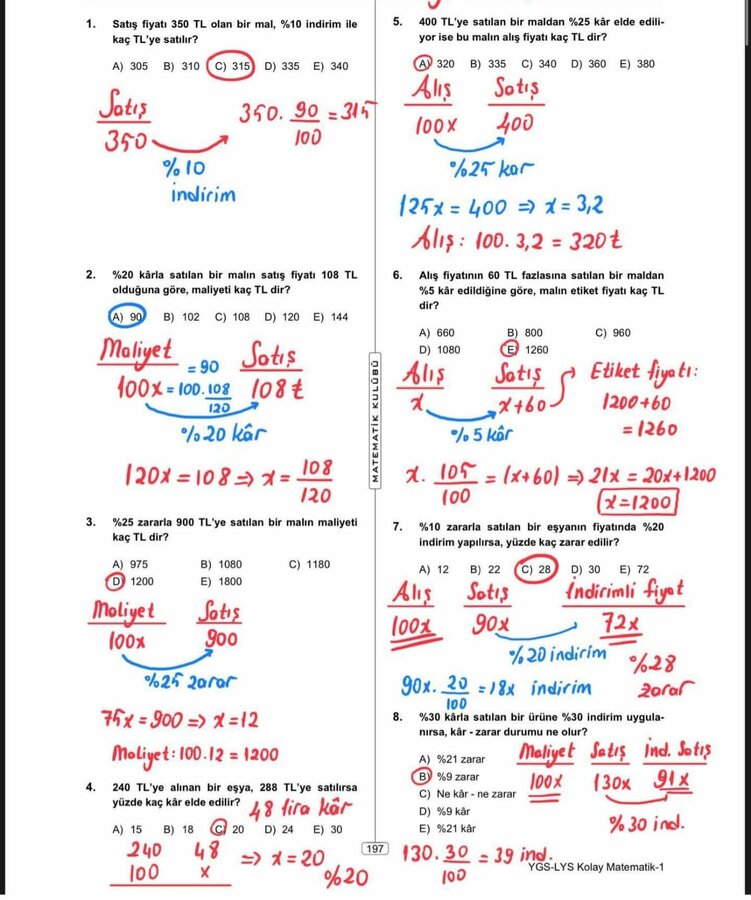 1. Satış fiyatı 350 TL olan bir mal, %10 indirim ile
kaç TL'ye satılır?
A) 305 B) 310 C) 315 D) 335 E) 340
Satış
350
%10
indirim
350. 90/100 = 315
2. %20 kârla satılan bir malın satış fiyatı 108 TL
olduğuna göre, maliyeti kaç TL dir?
A) 90 B) 102 C) 108 D) 120 E) 144
Maliyet
Satış
= 90
100x = 100. 108/120
108₺
%20 kâr
120x = 108 => x = 108/120
3. %25 zararla 900 TL'ye satılan bir malın maliyeti
kaç TL dir?
A) 975 B) 1080 C) 1180
D) 1200 E) 1800
Maliyet Satış
100x 900
%25 zarar
75x = 900 => x = 12
Maliyet: 100.12 = 1200
4. 240 TL'ye alınan bir eşya, 288 TL'ye satılırsa
yüzde kaç kâr elde edilir? 48 lira kâr
A) 15 B) 18 C) 20 D) 24 E) 30
240 48
100 x
=> x = 20
%20
MATEMATİK KULÜBÜ
197
5. 400 TL'ye satılan bir maldan %25 kâr elde edili-
yor ise bu malın alış fiyatı kaç TL dir?
A) 320 B) 335 C) 340 D) 360 E) 380
Alış Satış
100x 400
%25 kar
125x = 400 => x = 3,2
Alış: 100. 3,2 = 320₺
6. Alış fiyatının 60 TL fazlasına satılan bir maldan
%5 kâr edildiğine göre, malın etiket fiyatı kaç TL
dir?
A) 660 B) 800 C) 960
D) 1080 E) 1260
Alış Satış
x x+60
%5 kâr
Etiket fiyatı:
1200+60
= 1260
x. 105/100 = (x+60) => 21x = 20x+1200
x = 1200
7. %10 zararla satılan bir eşyanın fiyatında %20
indirim yapılırsa, yüzde kaç zarar edilir?
A) 12 B) 22 C) 28 D) 30 E) 72
Alış Satış İndirimli fiyat
100x 90x 72x
%20 indirim
%28
zarar
90x. 20/100 = 18x indirim
8. %30 kârla satılan bir ürüne %30 indirim uygula-
nırsa, kâr - zarar durumu ne olur?
A) %21 zarar
B) %9 zarar
C) Ne kâr - ne zarar
D) %9 kâr
E) %21 kâr
Maliyet Satış İnd. Satış
100x 130x 91x
%30 ind.
130. 30/100 = 39 ind.
YGS-LYS Kolay Matematik-1